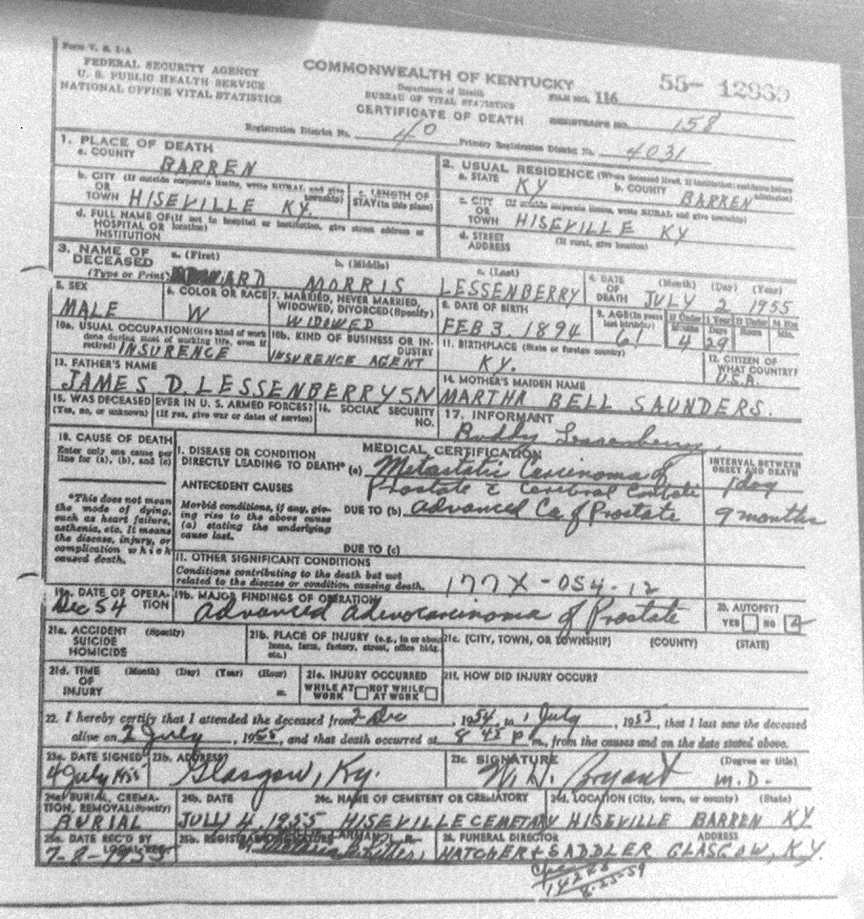 Form V. S. 1-A
FEDERAL SECURITY AGENCY
U. S. PUBLIC HEALTH SERVICE
NATIONAL OFFICE VITAL STATISTICS
COMMONWEALTH OF KENTUCKY
Department of Health
BUREAU OF VITAL STATISTICS
CERTIFICATE OF DEATH
55- 12939
FILE NO. 116
REGISTRAR'S NO. 158
Registration District No. 40 Primary Registration District No. 4031
1. PLACE OF DEATH
a. COUNTY BARREN
b. CITY (If outside corporate limits, write RURAL and give township)
OR
TOWN HISEVILLE KY.
c. LENGTH OF
STAY (in this place)
d. FULL NAME OF (If not in hospital or institution, give street address or location)
HOSPITAL OR
INSTITUTION
2. USUAL RESIDENCE (Where deceased lived. If institution: residence before admission)
a. STATE KY b. COUNTY BARREN
c. CITY (If outside corporate limits, write RURAL and give township)
OR
TOWN HISEVILLE KY
d. STREET (If rural, give location)
ADDRESS
3. NAME OF a. (First) b. (Middle) c. (Last)
DECEASED
(Type or Print) MORRIS LESSENBERRY
4. DATE (Month) (Day) (Year)
OF
DEATH JULY 2 1955
5. SEX
MALE
6. COLOR OR RACE
W
7. MARRIED, NEVER MARRIED,
WIDOWED, DIVORCED (Specify)
WIDOWED
8. DATE OF BIRTH
FEB 3. 1894
9. AGE (In years last birthday) 61
If Under 1 Year If Under 24 Hrs.
Months Days Hours Min.
4 29
10a. USUAL OCCUPATION (Give kind of work
done during most of working life, even if
retired) INSURENCE
10b. KIND OF BUSINESS OR INDUSTRY
INSURENCE AGENT
11. BIRTHPLACE (State or foreign country)
KY.
12. CITIZEN OF
WHAT COUNTRY?
U.S.A.
13. FATHER'S NAME
JAMES D. LESSENBERRY SN
14. MOTHER'S MAIDEN NAME
MARTHA BELL SAUNDERS.
15. WAS DECEASED EVER IN U. S. ARMED FORCES?
(Yes, no, or unknown) (If yes, give war or dates of service)
16. SOCIAL SECURITY
NO.
17. INFORMANT
Buddy Lessenberry
18. CAUSE OF DEATH
Enter only one cause per
line for (a), (b), and (c)
*This does not mean
the mode of dying,
such as heart failure,
asthenia, etc. It means
the disease, injury, or
complication which
caused death.
MEDICAL CERTIFICATION
I. DISEASE OR CONDITION
DIRECTLY LEADING TO DEATH* (a) Metastatic Carcinoma of
Prostate c Cerebral
ANTECEDENT CAUSES
Morbid conditions, if any, giving
rise to the above cause
(a) stating the underlying
cause last.
DUE TO (b) advanced Ca of Prostate
DUE TO (c)
INTERVAL BETWEEN
ONSET AND DEATH
1 day
9 months
11. OTHER SIGNIFICANT CONDITIONS
Conditions contributing to the death but not
related to the disease or condition causing death.
177X-054-12
19a. DATE OF OPERATION
Dec 54
19b. MAJOR FINDINGS OF OPERATION
advanced adenocarcinoma of Prostate
20. AUTOPSY?
YES NO
21a. ACCIDENT (Specify)
SUICIDE
HOMICIDE
21b. PLACE OF INJURY (e.g., in or about
home, farm, factory, street, office bldg.
etc.)
21c. (CITY, TOWN, OR TOWNSHIP) (COUNTY) (STATE)
21d. TIME (Month) (Day) (Year) (Hour)
OF
INJURY m.
21e. INJURY OCCURRED
WHILE AT WORK NOT WHILE AT WORK
21f. HOW DID INJURY OCCUR?
22. I hereby certify that I attended the deceased from 2 Dec, 1954, to 1 July, 1953, that I last saw the deceased
alive on 2 July, 1955, and that death occurred at 8 45 P m., from the causes and on the date stated above.
23a. DATE SIGNED
4 July 1955
23b. ADDRESS
Glasgow, Ky.
23c. SIGNATURE (Degree or title)
W. D. Bryant M.D.
24a. BURIAL, CREMATION, REMOVAL (Specify)
BURIAL
24b. DATE
JULY 4. 1955
24c. NAME OF CEMETERY OR CREMATORY
HISEVILLE CEMETARY
24d. LOCATION (City, town, or county) (State)
HISEVILLE BARREN KY
25a. DATE REC'D BY
LOCAL REG.
7-8-1955
25b. REGISTRAR'S SIGNATURE
26. FUNERAL DIRECTOR ADDRESS
HATCHER & SADDLER GLASGOW, KY.
14245
8-25-59